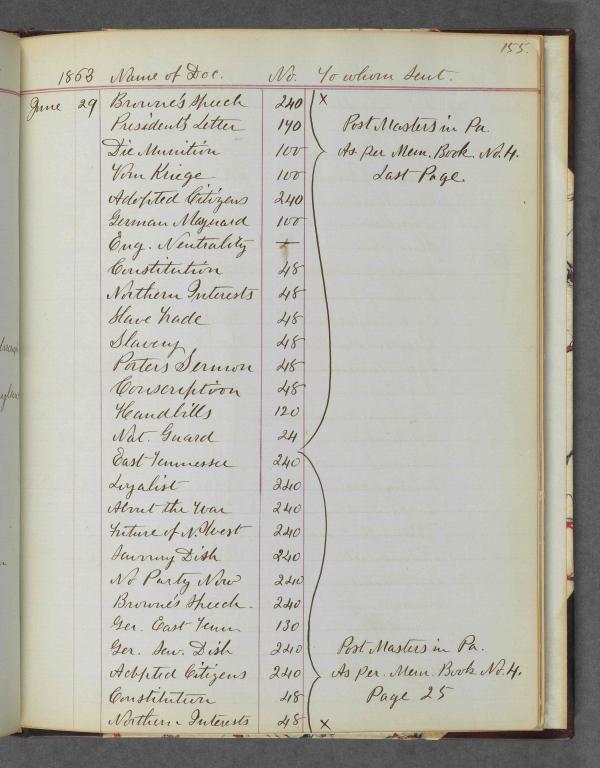 155.
1863 Name of Doc. No. To whom Sent.
June 29 Browne's Speech 240 x
President's Letter 140 Post Masters in Pa.
Die Munition 100 As per Mem. Book No. 4.
Vom Kriege 100 Last Page.
Adopted Citizens 240
German Maynard 100
Eng. Neutrality
Constitution 48
Northern Interests 48
Slave Trade 48
Slavery 48
Porters Sermon 48
Conscription 48
Handbills 120
Nat. Guard 24
East Tennessee 240
Loyalist 240
About the War 240
Future of N. West 240
Savory Dish 240
No Party Now 240
Browne's Speech. 240
Ger. East Tenn 130
Ger. Sav. Dish 240 Post Masters in Pa.
Adopted Citizens 240 As per. Mem. Book No. 4.
Constitution 48 Page 25
Northern Interests 48 x